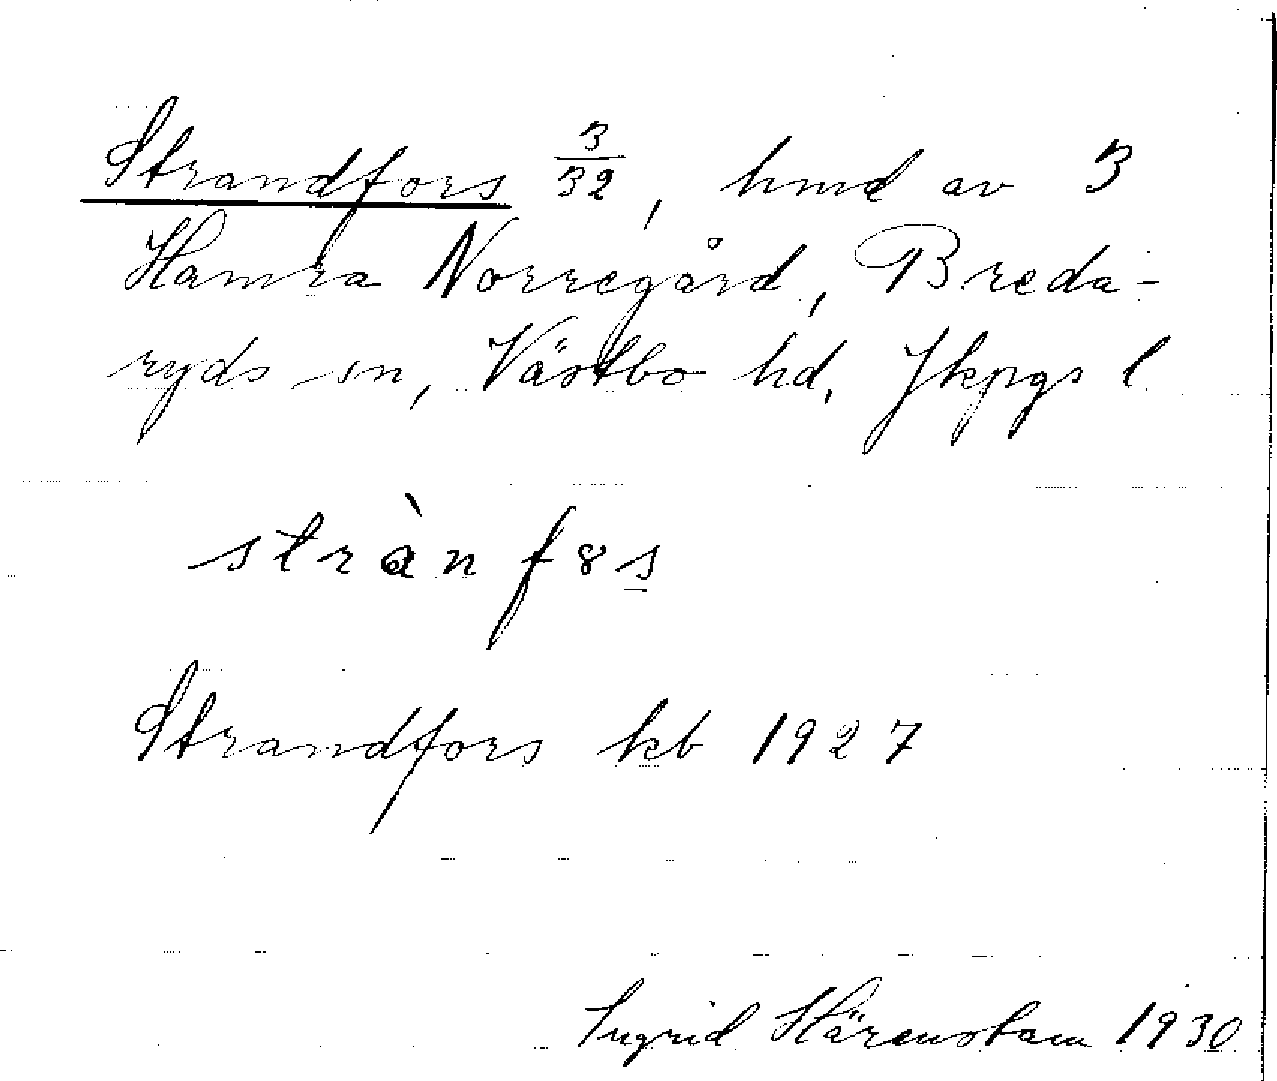 Strandfors 3/32, hmd av 3
Hamra Norregård, Breda-
ryds sn, Västbo hd, Jkpgs l
stràn f8s
Strandfors kb 1927
Ingrid Härenstam 1930